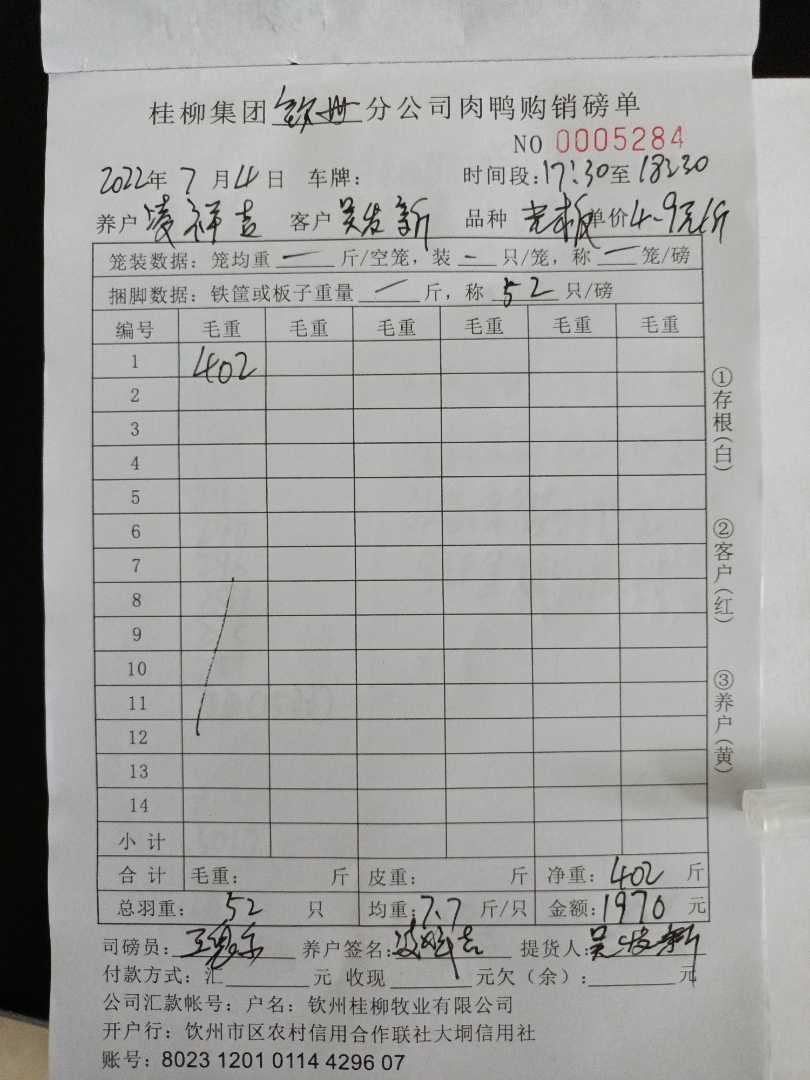 桂柳集团钦州分公司肉鸭购销磅单
NO 0005284
2022年 7 月 4 日 车牌: 时间段:17:30至 18:30
养户 凌祥吉 客户 吴发新 品种 光板 单价4.9元/斤
笼装数据: 笼均重 一 斤/空笼, 装 一 只/笼, 称 一 笼/磅
捆脚数据: 铁筐或板子重量 一 斤, 称 52 只/磅
编号 毛重 毛重 毛重 毛重 毛重 毛重
1 402
2
3
4
5
6
7
8
9
10
11
12
13
14
小计
合计 毛重: 斤 皮重: 斤 净重: 402 斤
总羽重: 52 只 均重: 7.7 斤/只 金额: 1970 元
司磅员: 养户签名: 凌祥吉 提货人: 吴发新
付款方式: 汇 元 收现 元欠(余): 元
公司汇款帐号: 户名: 钦州桂柳牧业有限公司
开户行: 钦州市区农村信用合作联社大垌信用社
账号: 8023 1201 0114 4296 07
①存根(白)
②客户(红)
③养户(黄)